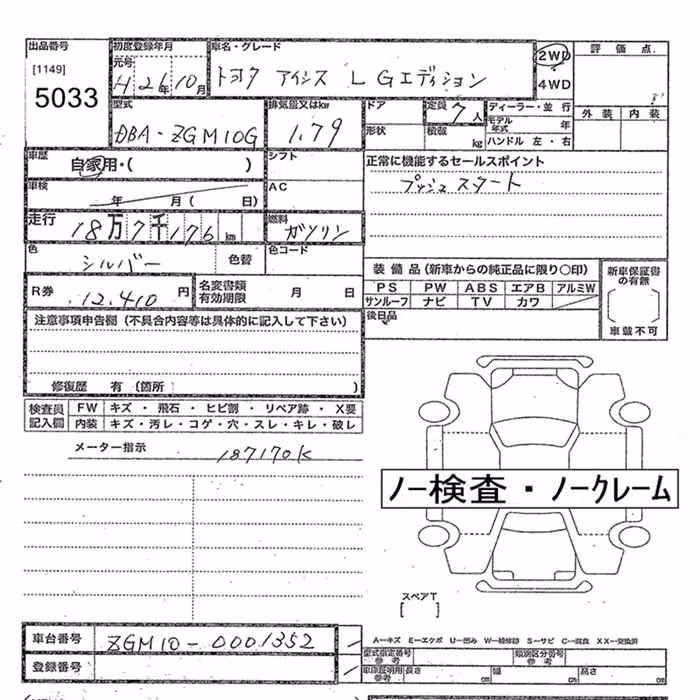 出品番号
[1149]
5033
初度登録年月
元号
H 26年 10月
車名・グレード
トヨタ アイシス L Gエディション
2WD
4WD
評価点
外装 内装
型式
DBA-ZGM10G
排気量又はkw
1.79
ドア
形状
定員
7人
積載
kg
ディーラー・並行
モデル年式 年
ハンドル 左・右
車歴
自家用・( )
シフト
正常に機能するセールスポイント
プッシュスタート
車検
年 月( 日)
AC
走行
18万7千176km
燃料
ガソリン
色
シルバー
色替
色コード
R券
12,410円
名変書類
有効期限
月 日
装備品(新車からの純正品に限り○印)
PS PW ABS エアB アルミW
サンルーフ ナビ TV カワ
後日品
新車保証書
の有無
車載不可
注意事項申告欄(不具合内容等は具体的に記入して下さい)
修復歴 有(箇所 )
検査員
記入欄
FW キズ・飛石・ヒビ割・リペア跡・X要
内装 キズ・汚レ・コゲ・穴・スレ・キレ・破レ
メーター指示
187170K
ノー検査・ノークレーム
スペアT
[ ]
車台番号
ZGM10-0001352
登録番号
A−キズ E−エクボ U−凹み W−補修跡 S−サビ C−腐食 XX−交換済
型式指定番号
参考
類別区分番号
参考
車庫証明用
参考
長さ cm 幅 cm 高さ cm